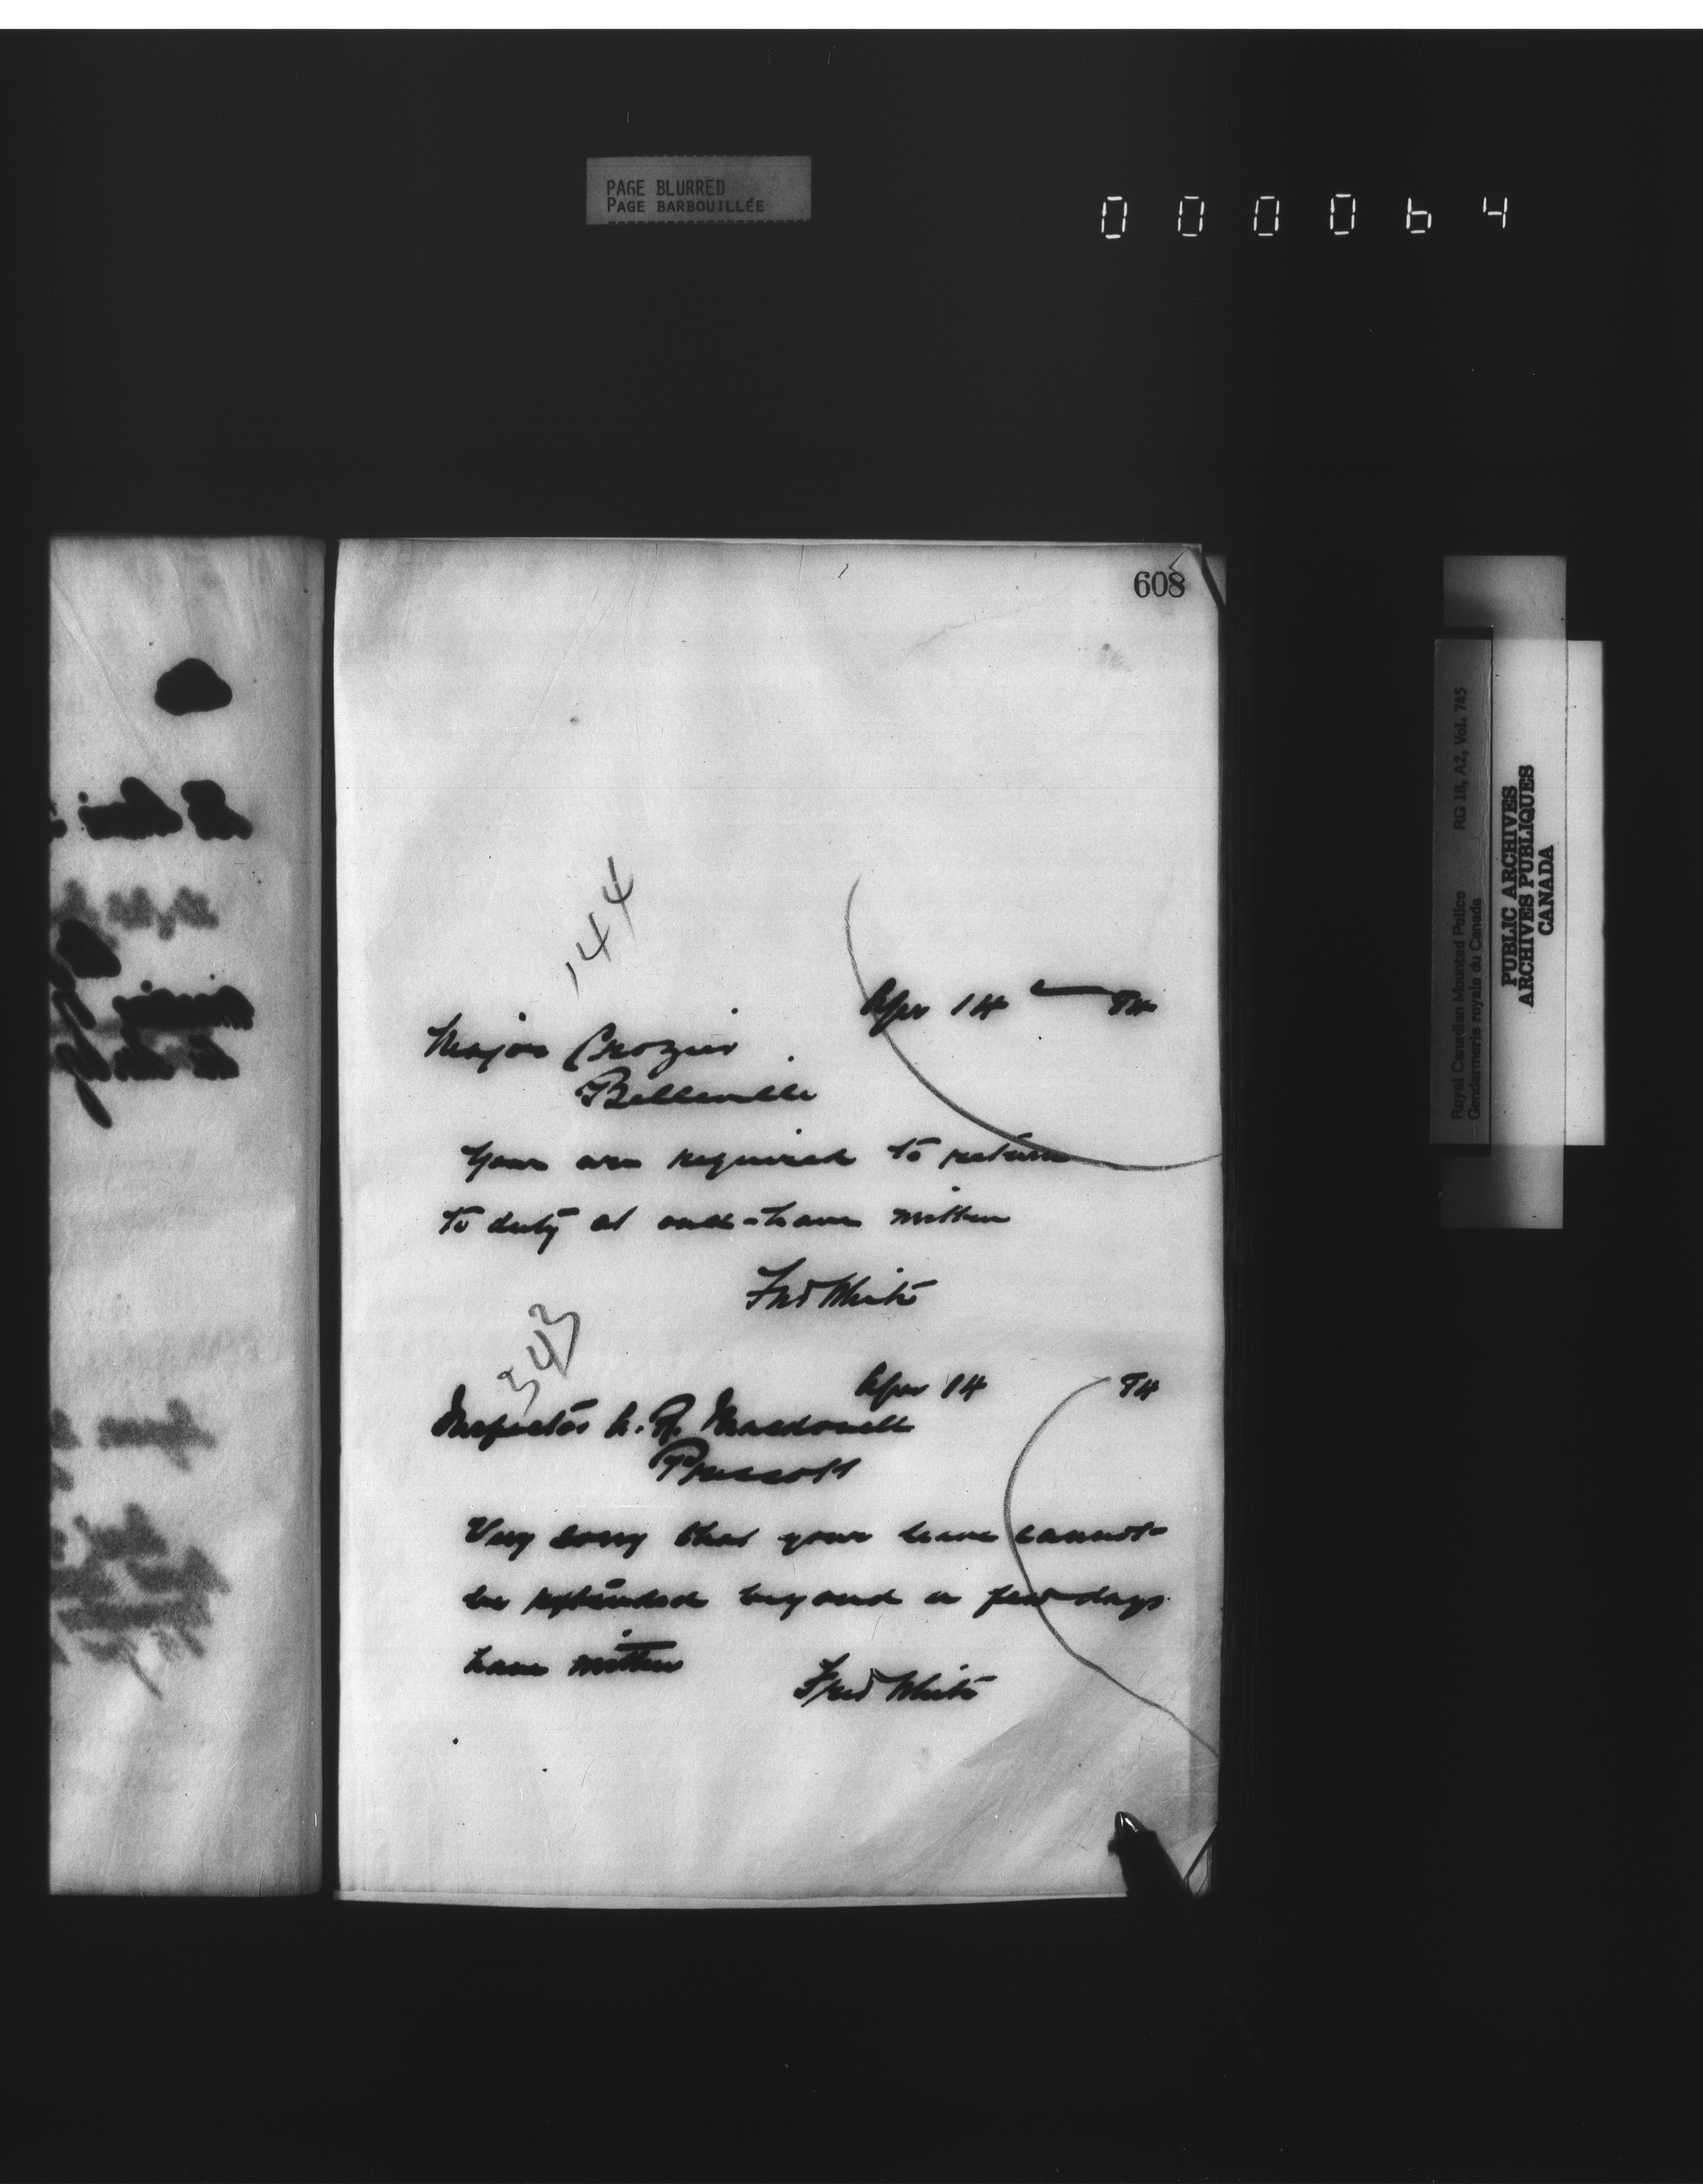 PAGE BLURRED
PAGE BARBOUILLÉE
000064
608
144
Apr 14 — 84
Major Crozier
Belleville
You are required to return
to duty at once - have written
Fred White
343
Apr 14 84
Inspector A. R. Macdonell
Prescott
Very sorry that your leave cannot
be extended beyond a few days
have written
Fred White
Royal Canadian Mounted Police RG 18, A2, Vol. 745
Gendarmerie royale du Canada
PUBLIC ARCHIVES
ARCHIVES PUBLIQUES
CANADA